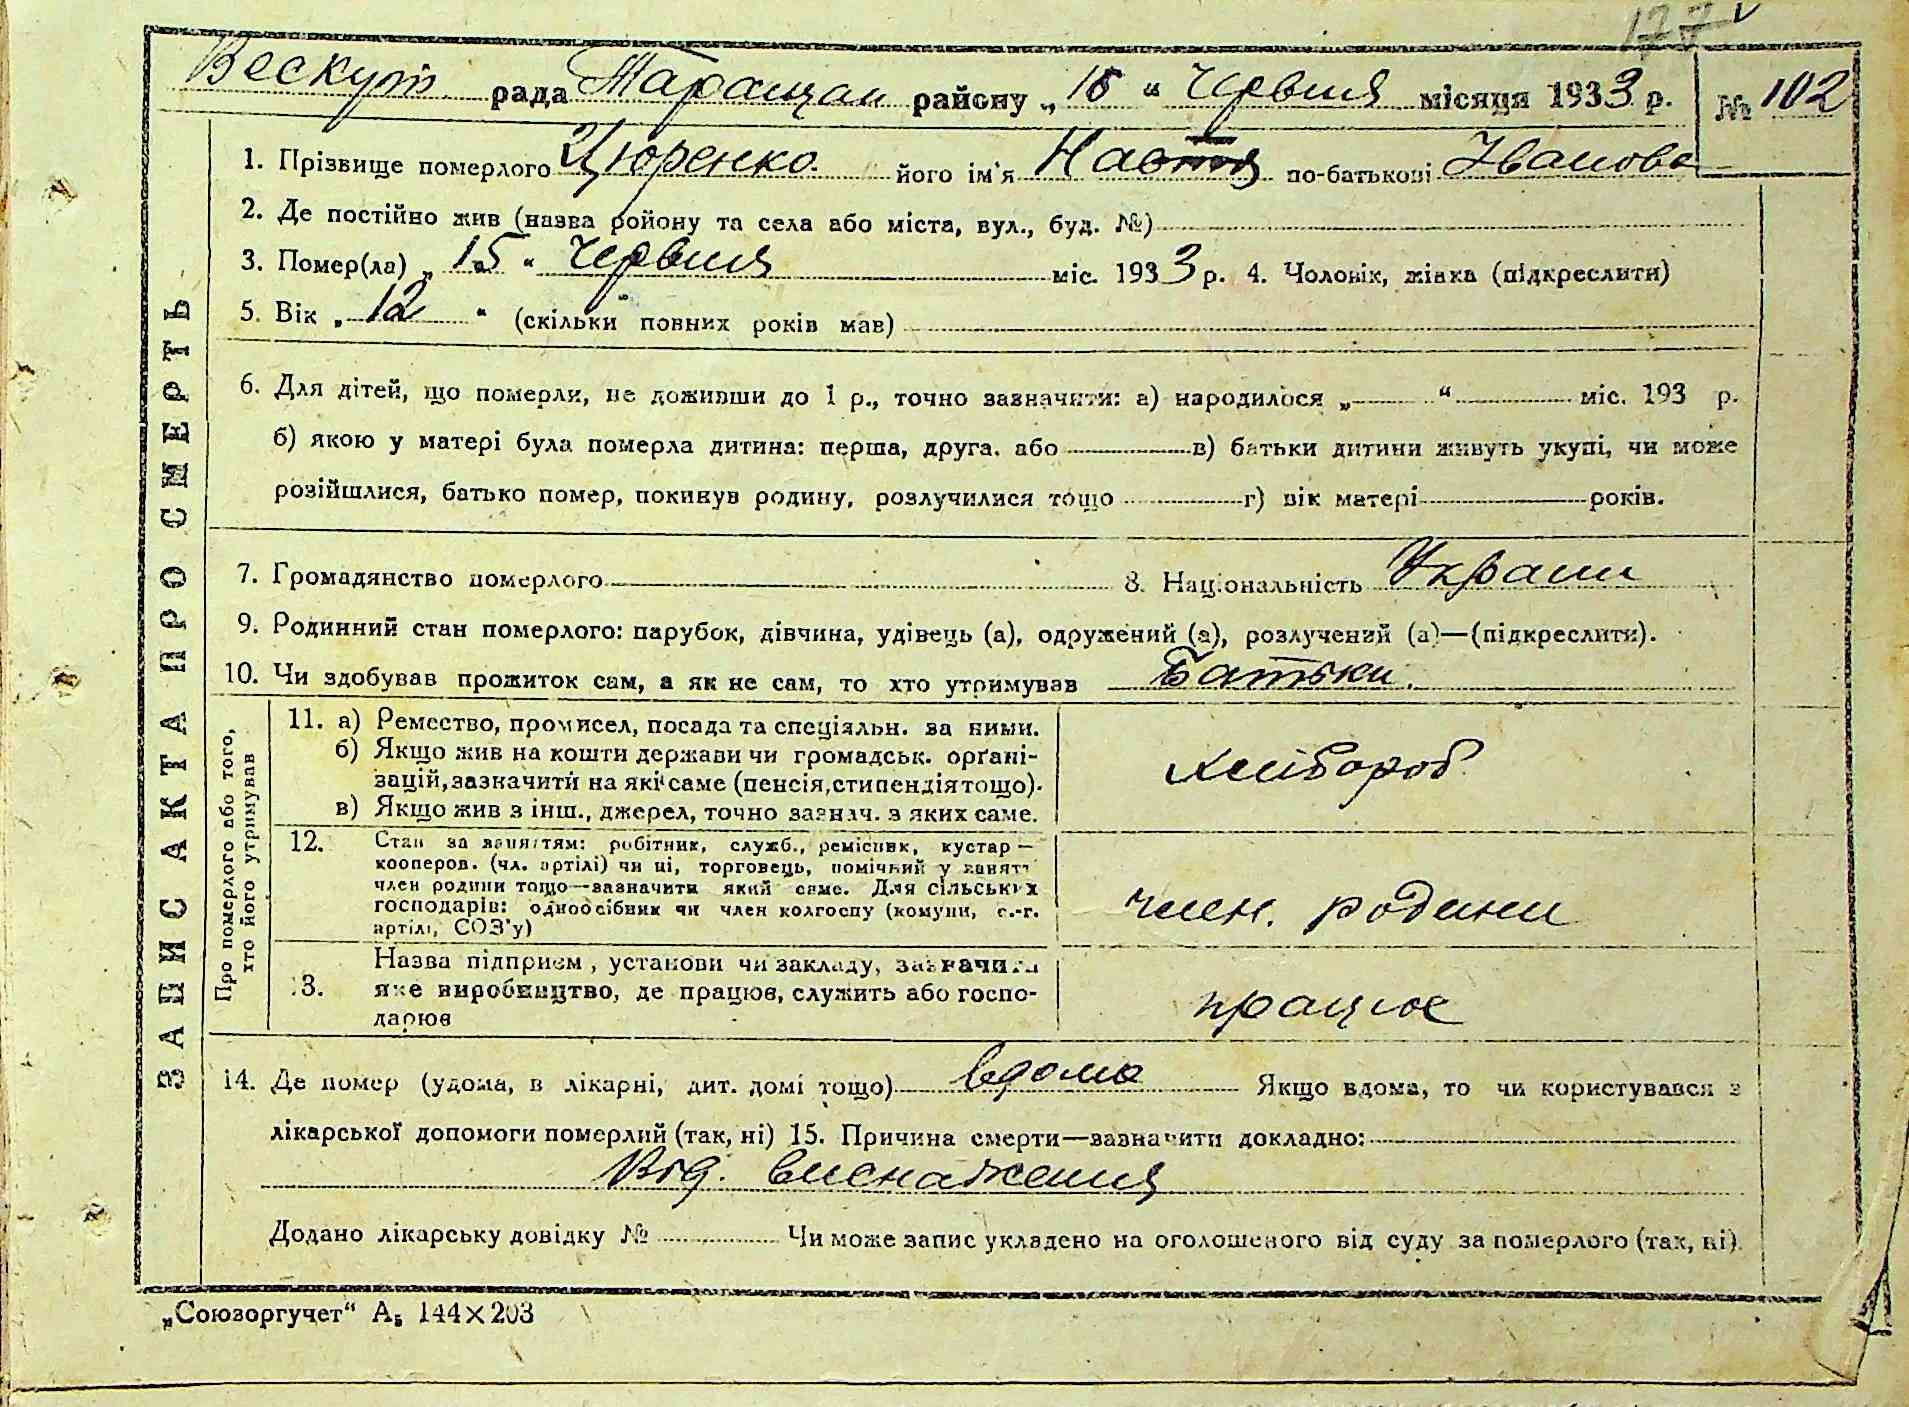 177
Вескут рада Таращан району „ 15 “ Червня місяця 1933 р. № 102
ЗАПИС АКТА ПРО СМЕРТЬ
1. Прізвище померлого Цюренко його ім'я Настя по-батькові Іванова
2. Де постійно жив (назва району та села або міста, вул., буд. №)
3. Помер(ла) „ 15 “ Червня міс. 1933 р. 4. Чоловік, жінка (підкреслити)
5. Вік „ 12 “ (скільки повних років мав)
6. Для дітей, що померли, не доживши до 1 р., точно зазначити: а) народилося „ “ міс. 193 р.
б) якою у матері була померла дитина: перша, друга. або в) батьки дитини живуть укупі, чи може
розійшлися, батько помер, покинув родину, розлучилися тощо г) вік матері років.
7. Громадянство померлого 8. Національність Україн
9. Родинний стан померлого: парубок, дівчина, удівець (а), одружений (а), розлучений (а)—(підкреслити).
10. Чи здобував прожиток сам, а як не сам, то хто утримував Батьки.
Про померлого або того,
хто його утримував
11. а) Ремество, промисел, посада та спеціяльн. за ними.
б) Якщо жив на кошти держави чи громадськ. орґані-
зацій, зазначити на які саме (пенсія, стипендія тощо).
в) Якщо жив з інш., джерел, точно зазнач. з яких саме.
хлібороб
12. Стан за заняттям: робітник, служб., ремісник, кустар —
кооперов. (чл. артілі) чи ні, торговець, помічний у занятт
член родини тощо—зазначити який саме. Для сільських
господарів: одноосібник чи член колгоспу (комуни, с.-г.
артілі, СОЗ'у)
член. родини
13. Назва підприєм, установи чи закладу, зазначити
яке виробництво, де працює, служить або госпо-
дарює
працює
14. Де помер (удома, в лікарні, дит. домі тощо) вдома Якщо вдома, то чи користувався з
лікарської допомоги померлий (так, ні) 15. Причина смерти—зазначити докладно:
Від. виснаження
Додано лікарську довідку № Чи може запис укладено на оголошеного від суду за померлого (так, ні)
„Союзоргучет“ А₅ 144×203